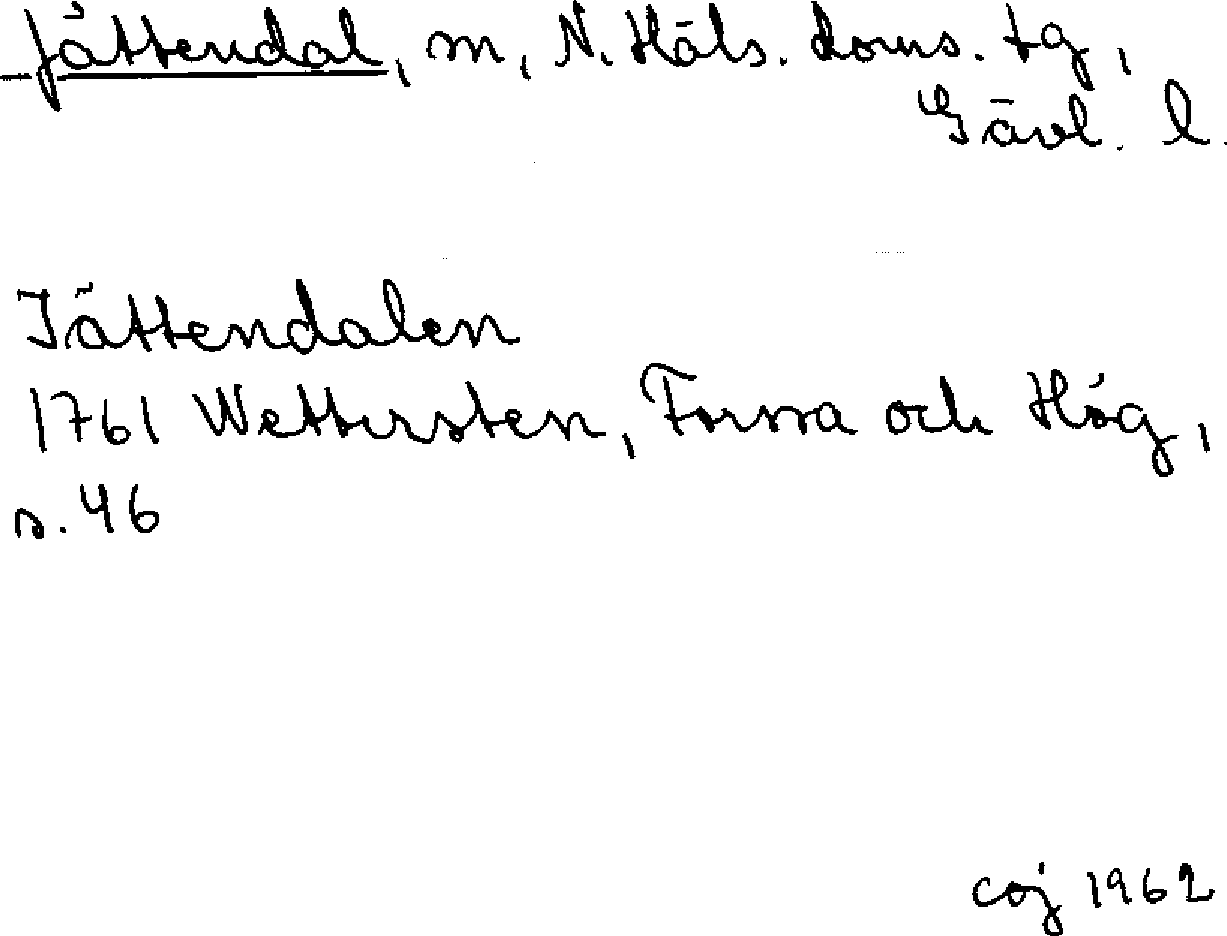 Jättendal, sn, N. Häls. doms. tg,
Gävl. l.
Jättendalen
1761 Wettersten, Forssa och Hög,
s. 46
coj 1962